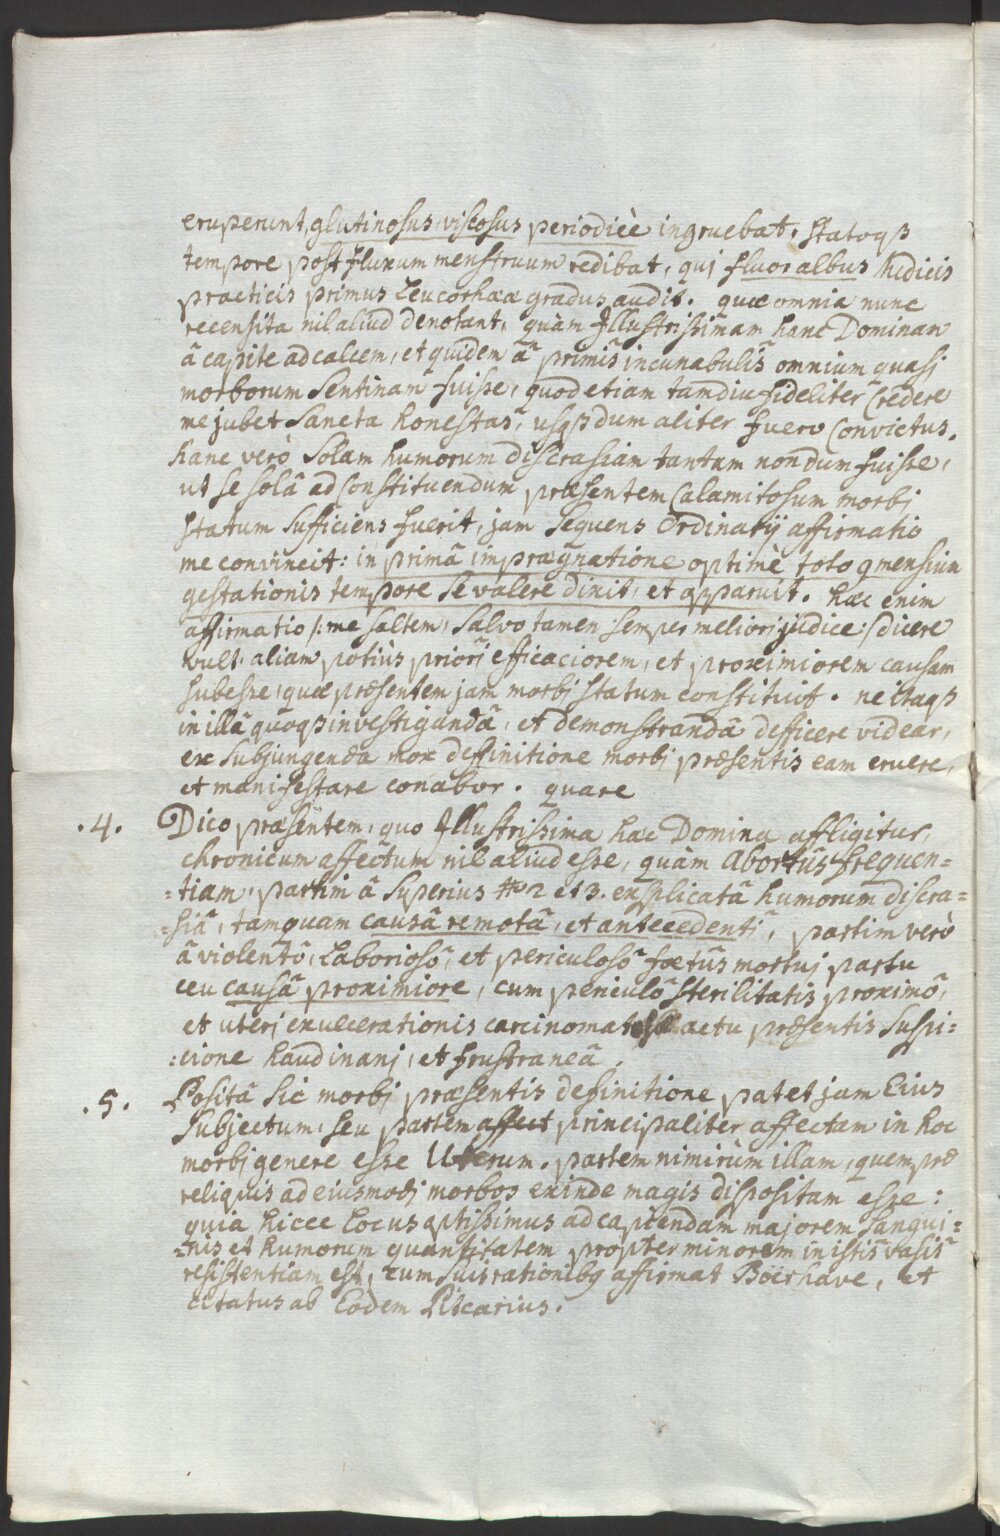 eruperunt, glutinosus, viscosus periodicè ingruebat, statoqȝ
tempore post fluxum menstruum redibat, qui fluor albus Medicis
practicis primus Leucorhææ gradus audit. quæ omnia nunc
recensita nil aliud denotant, quàm Illustrissimam hanc Dominam
â capite ad calcem, et quidem â primis incunabulis omnium quasi
morborum Sentinam fuisse, quod etiam tamdiu fideliter Credere
me jubet Sancta honestas, usqȝ dum aliter fuero Convictus.
hanc verò Solam humorum discrasiam tantam nondum fuisse,
ut se solâ ad Constituendum præsentem Calamitosum morbj
statum sufficiens fuerit, jam sequens Ordinarij affirmatio
me convincit: in primâ imprægnatione optimè toto 9 mensium
gestationis tempore se valere dixit, et apparuit. hæc enim
affirmatio /: me saltem, salvo tamen semper meliorj judice :/ dicere
vult aliam potiùs priorj efficaciorem, et proximiorem causam
subesse, quæ præsentem jam morbj statum constituit. ne itaqȝ
in illâ quoqȝ investigandâ, et demonstrandâ defficere videar,
ex subjungenda mox deffinitione morbj præsentis eam eruere,
et manifestare conabor. quare
.4. Dico præsentem, quo Illustrissima hæc Domina affligitur,
chronicum affectum nil aliud esse, quàm Abortûs frequen=
=tiam, partim â superius 2 et 3. explicatâ humorum discra=
=siâ, tamquam causâ remotâ, et antecedentj, partim verò
â violentô, Laboriosô, et periculosô foetûs mortuj partu
ceu causâ proximiore, cum periculô sterilitatis proximô,
et uterj exulcerationis carcinomat actu præsentis suspi=
=cione haud inanj, et frustraneâ.
.5. Positâ sic morbj præsentis definitione patet jam Eius
Subjectum, seu partem affect principaliter affectam in hoc
morbj genere esse Uterum. partem nimirùm illam, quem præ
reliquis ad eiusmodj morbos exinde magis dispositam esse:
quia hicce locus aptissimus ad capiendam majorem sangui=
=nis et humorum quantitatem propter minorem in istis vasis
resistentiam est, cum suis rationibȝ affirmat Böerhave, et
citatus ab Eodem Pitcarius.